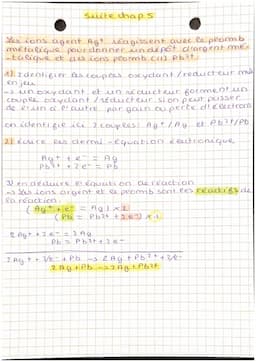 Suite chap 5
Les ions argent Ag+ réagissent avec le plomb
métallique pour donner un dépôt d'argent mé-
-tallique et des ions plomb (II) Pb2+.
1) Identifier les couples oxydant / reducteur mis
en jeu
-> un oxydant et un réducteur forment un
couple oxydant / réducteur si on peut passer
de l'un a l'autre par gain ou perte d'électrons
on identifie ici 2 couples: Ag+/Ag et Pb2+/Pb
2) Ecrire les demi-équation électronique
Ag+ + e- = Ag
Pb2+ + 2e- = Pb
3) en déduire l'équation de réaction
-> Les ions argent et le plomb sont les réactifs de
la réaction:
(Ag+ + e- = Ag) x 2
(Pb = Pb2+ + 2e-) x 1
2Ag+ + 2e- = 2Ag
Pb = Pb2+ + 2e-
2Ag+ + 2e- + Pb -> 2Ag + Pb2+ + 2e-
2Ag + Pb -> 2Ag + Pb2+